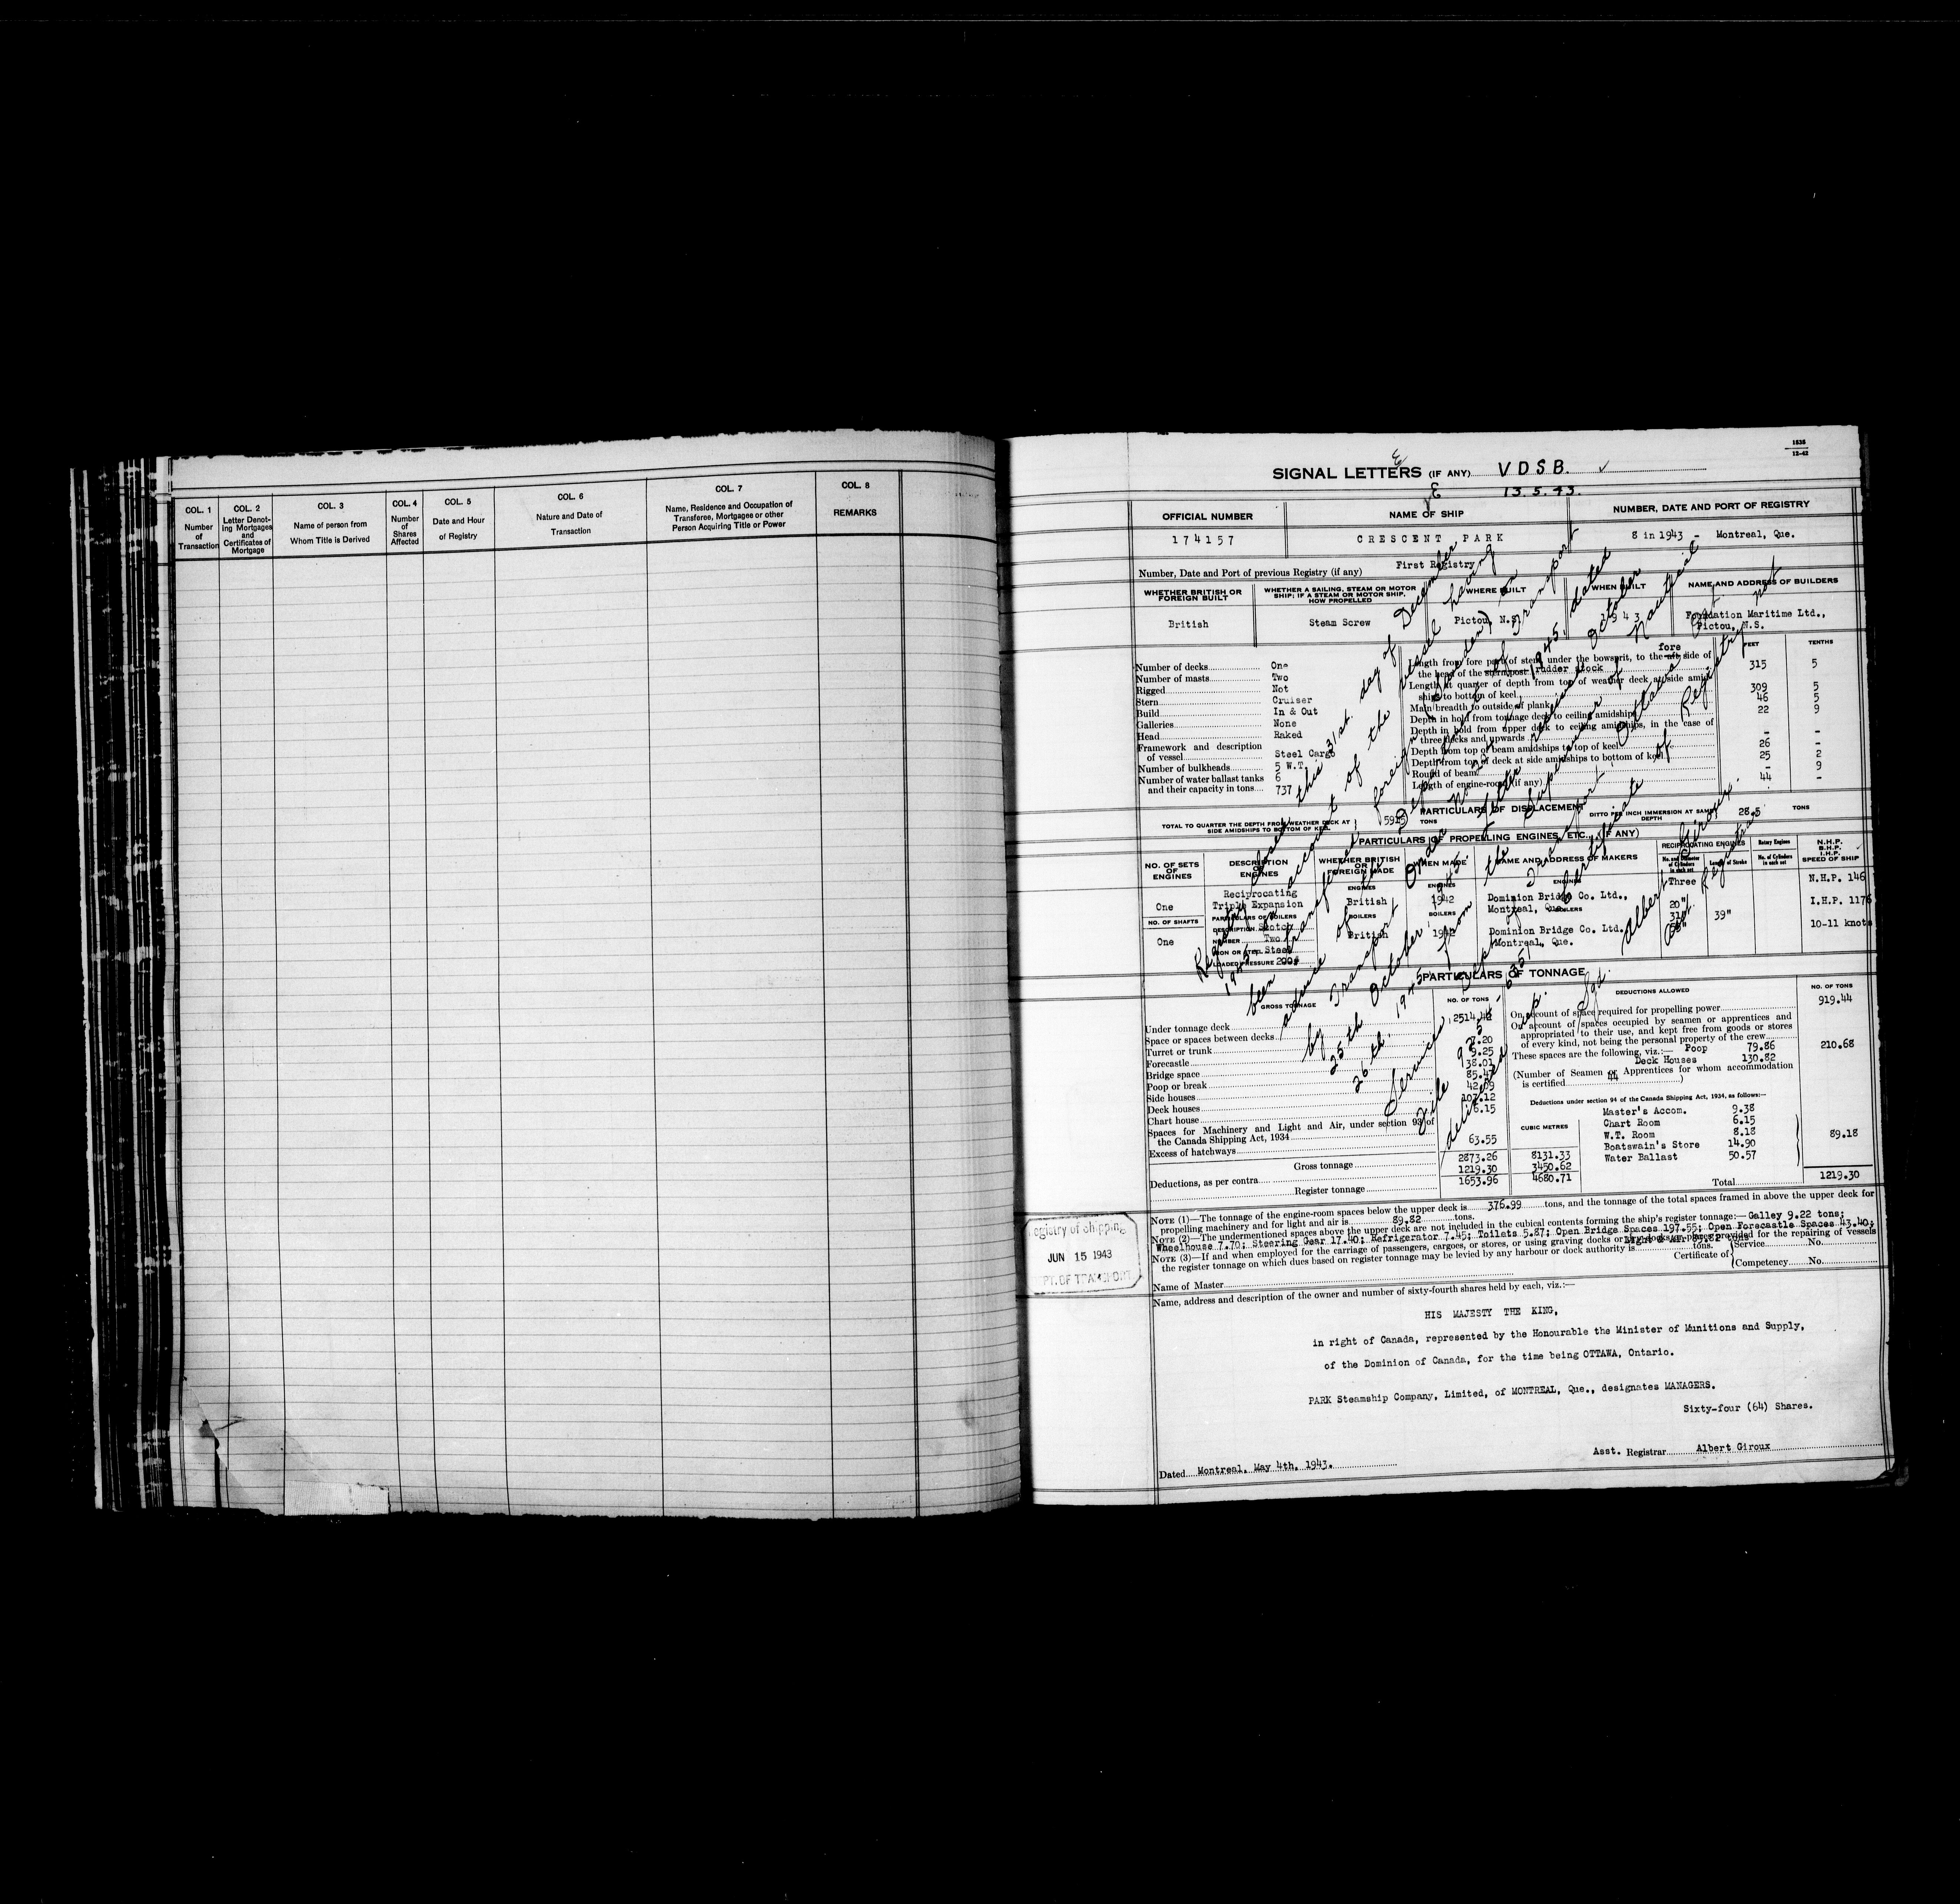 COL. 1
Number
of
Transaction
COL. 2
Letter Denot-
ing Mortgages
and
Certificates of
Mortgage
COL. 3
Name of person from
Whom Title is Derived
COL. 4
Number
of
Shares
Affected
COL. 5
Date and Hour
of Registry
COL. 6
Nature and Date of
Transaction
COL. 7
Name, Residence and Occupation of
Transferee, Mortgagee or other
Person Acquiring Title or Power
COL. 8
REMARKS
1535
12-42
SIGNAL LETTERS (IF ANY) V D S B.
13.5.43.
OFFICIAL NUMBER
NAME OF SHIP
NUMBER, DATE AND PORT OF REGISTRY
174157
CRESCENT PARK
8 in 1943 - Montreal, Que.
Number, Date and Port of previous Registry (if any) First Registry
WHETHER BRITISH OR
FOREIGN BUILT
WHETHER A SAILING, STEAM OR MOTOR
SHIP; IF A STEAM OR MOTOR SHIP,
HOW PROPELLED
WHERE BUILT
WHEN BUILT
NAME AND ADDRESS OF BUILDERS
British
Steam Screw
Pictou, N.S.
1943
Foundation Maritime Ltd.,
Pictou, N.S.
FEET TENTHS
Number of decks One
Number of masts Two
Rigged Not
Stern Cruiser
Build In & Out
Galleries None
Head Raked
Framework and description
of vessel Steel Cargo
Number of bulkheads 5 W.T.
Number of water ballast tanks 6
and their capacity in tons 737
Length from fore part of stem, under the bowsprit, to the fore aft side of
the head of the sternpost rudder stock 315 5
Length at quarter of depth from top of weather deck at side amid-
ships to bottom of keel 309 5
Main breadth to outside of plank 46 5
Depth in hold from tonnage deck to ceiling amidships 22 9
Depth in hold from upper deck to ceiling amidships, in the case of
three decks and upwards - -
Depth from top of beam amidships to top of keel 26 -
Depth from top of deck at side amidships to bottom of keel 25 2
Round of beam - 9
Length of engine-room (if any) 44 -
PARTICULARS OF DISPLACEMENT
TOTAL TO QUARTER THE DEPTH FROM WEATHER DECK AT
SIDE AMIDSHIPS TO BOTTOM OF KEEL
TONS
DITTO PER INCH IMMERSION AT SAME
DEPTH 28.5 TONS
PARTICULARS OF PROPELLING ENGINES, ETC., (IF ANY)
NO. OF SETS
OF
ENGINES
DESCRIPTION
OF
ENGINES
WHETHER BRITISH
OR
FOREIGN MADE
WHEN MADE
NAME AND ADDRESS OF MAKERS
RECIPROCATING ENGINES
No. and Diameter
of Cylinders
in each set
Length of Stroke
Rotary Engines
No. of Cylinders
in each set
N.H.P.
B.H.P.
I.H.P.
SPEED OF SHIP
One
Reciprocating
Triple Expansion
ENGINES
British
ENGINES
1942
ENGINES
Dominion Bridge Co. Ltd.,
Montreal, Que.
Three
20"
31"
39"
N.H.P. 146
I.H.P. 1176
10-11 knots
NO. OF SHAFTS
One
PARTICULARS OF BOILERS
DESCRIPTION Scotch
NUMBER Two
IRON OR STEEL Steel
LOADED PRESSURE 200#
BOILERS
British
BOILERS
1942
BOILERS
Dominion Bridge Co. Ltd.
Montreal, Que.
PARTICULARS OF TONNAGE
GROSS TONNAGE
NO. OF TONS
Under tonnage deck 2514.42
Space or spaces between decks
Turret or trunk
Forecastle
Bridge space 138.01
Poop or break 85.47
Side houses
Deck houses 107.12
Chart house 6.15
Spaces for Machinery and Light and Air, under section 93 of
the Canada Shipping Act, 1934
Excess of hatchways 63.55
CUBIC METRES
Gross tonnage 2873.26 8131.33
Deductions, as per contra 1219.30 3450.62
Register tonnage 1653.96 4680.71
DEDUCTIONS ALLOWED
NO. OF TONS
On account of space required for propelling power 919.44
On account of spaces occupied by seamen or apprentices and
appropriated to their use, and kept free from goods or stores
of every kind, not being the personal property of the crew
These spaces are the following, viz.:— Poop 79.86
Deck Houses 130.82
210.68
(Number of Seamen or Apprentices for whom accommodation
is certified 44 )
Deductions under section 94 of the Canada Shipping Act, 1934, as follows:—
Master's Accom. 9.38
Chart Room 6.15
W.T. Room 8.18
Boatswain's Store 14.90
Water Ballast 50.57
89.18
Total 1219.30
NOTE (1)—The tonnage of the engine-room spaces below the upper deck is 376.99 tons, and the tonnage of the total spaces framed in above the upper deck for
propelling machinery and for light and air is 89.82 tons.
NOTE (2)—The undermentioned spaces above the upper deck are not included in the cubical contents forming the ship's register tonnage:— Galley 9.22 tons;
Wheelhouse 7.70; Steering Gear 17.40; Refrigerator 7.45; Toilets 5.87; Open Bridge Spaces 197.55; Open Forecastle Spaces 43.40;
Light & Air 89.82 tons
NOTE (3)—If and when employed for the carriage of passengers, cargoes, or stores, or using graving docks or dry docks or places provided for the repairing of vessels
the register tonnage on which dues based on register tonnage may be levied by any harbour or dock authority is tons.
Certificate of Service No.
Competency No.
Name of Master
Name, address and description of the owner and number of sixty-fourth shares held by each, viz.:—
HIS MAJESTY THE KING,
in right of Canada, represented by the Honourable the Minister of Munitions and Supply,
of the Dominion of Canada, for the time being OTTAWA, Ontario.
PARK Steamship Company, Limited, of MONTREAL, Que., designates MANAGERS.
Sixty-four (64) Shares.
Asst. Registrar Albert Giroux
Dated Montreal, May 4th, 1943.
egistry of shipping
JUN 15 1943
PT. OF TRANSPORT
Registry closed this 31st. day of December
1945, account of the vessel having
been transferred foreign
advice of the Dept. of Transport
by Transport Order No. dated
25th October 1945
26th. 1945 from the Supervisor of Nautical
Services, Dept. of Transport, Ottawa
File Certificate of Registry not
delivered up.
Sgd. Albert Giroux
Registrar